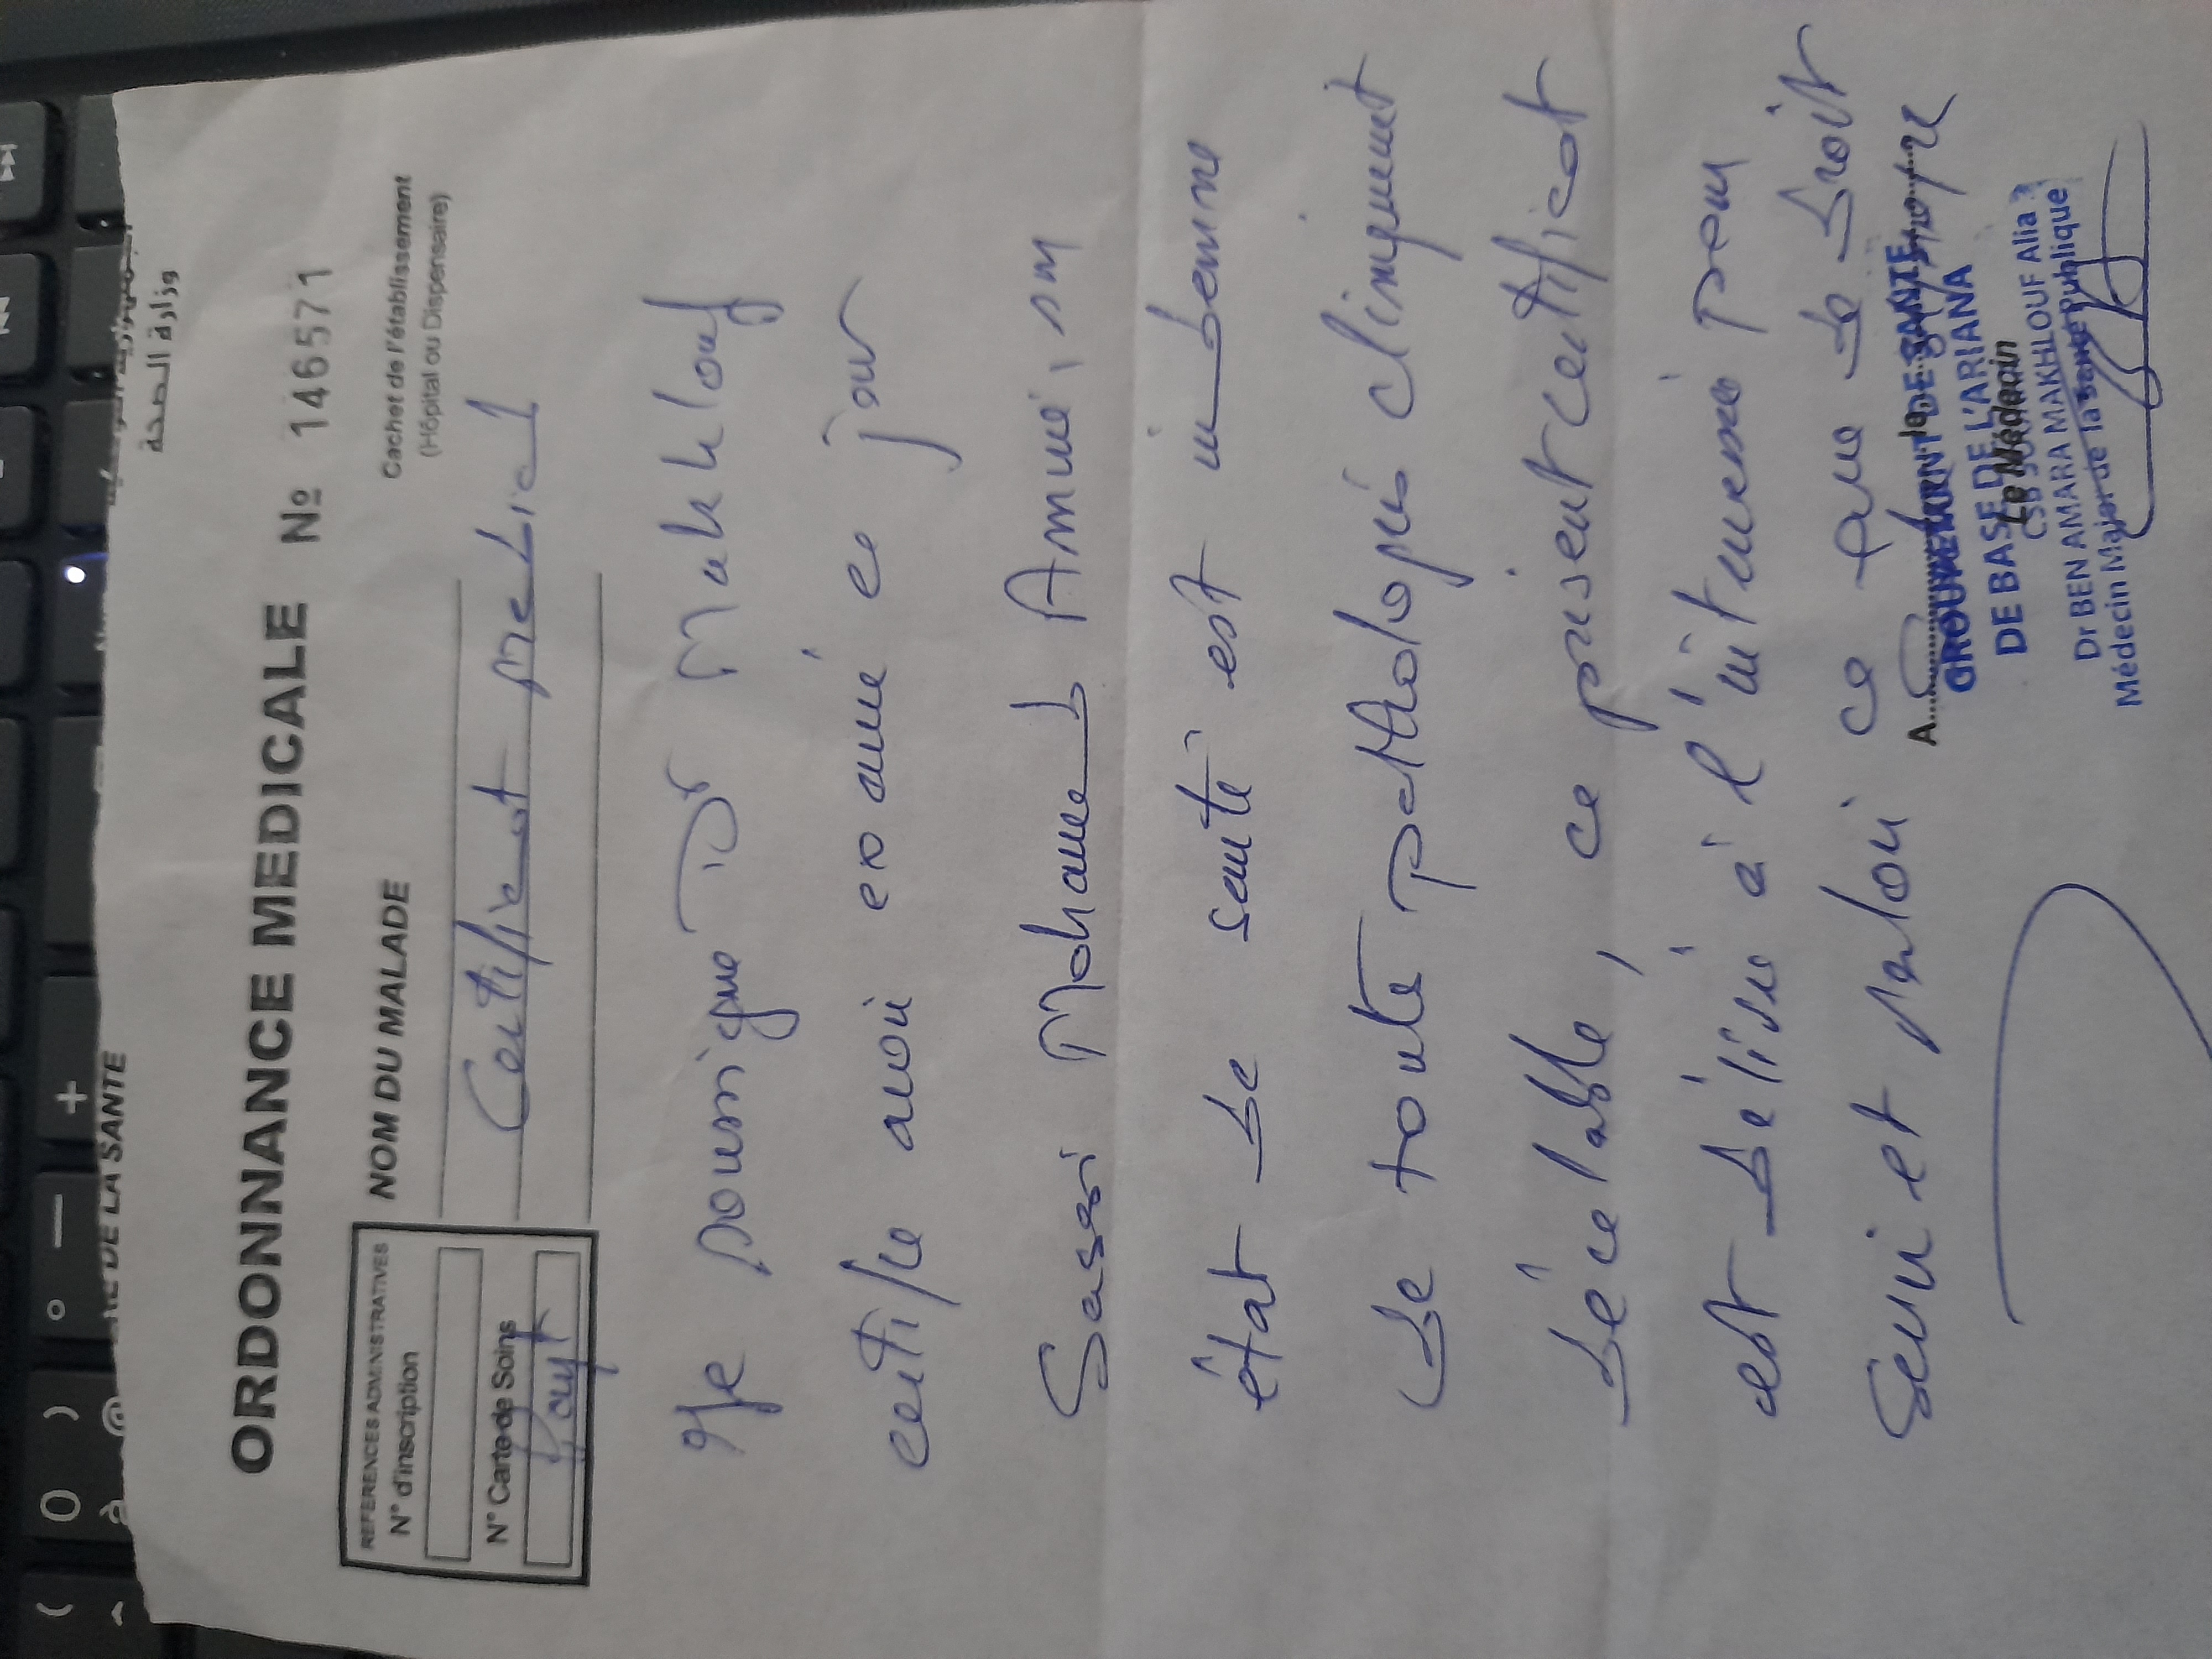 وزارة الصحة
DE LA SANTE
ORDONNANCE MEDICALE № 146571
REFERENCES ADMINISTRATIVES
N° d'inscription
N° Carte de Soins
NOM DU MALADE
Cachet de l'établissement
(Hôpital ou Dispensaire)
Certificat medical
Je soussigné Dr Makhlouf
certifie avoir examiné ce jour
Sassi Mohamed Amine, son
état de santé est indemne
de toute pathologie cliniquement
décelable, ce présent certificat
est délivré à l'intéressé pour
servir et valoir ce que de droit
A........ le
GROUPEMENT DE SANTE
DE BASE DE L'ARIANA
Le Médecin
CSB
Dr BEN AMARA MAKHLOUF Alia
Médecin Major de la Santé Publique
( 0 ) ° - +
à @